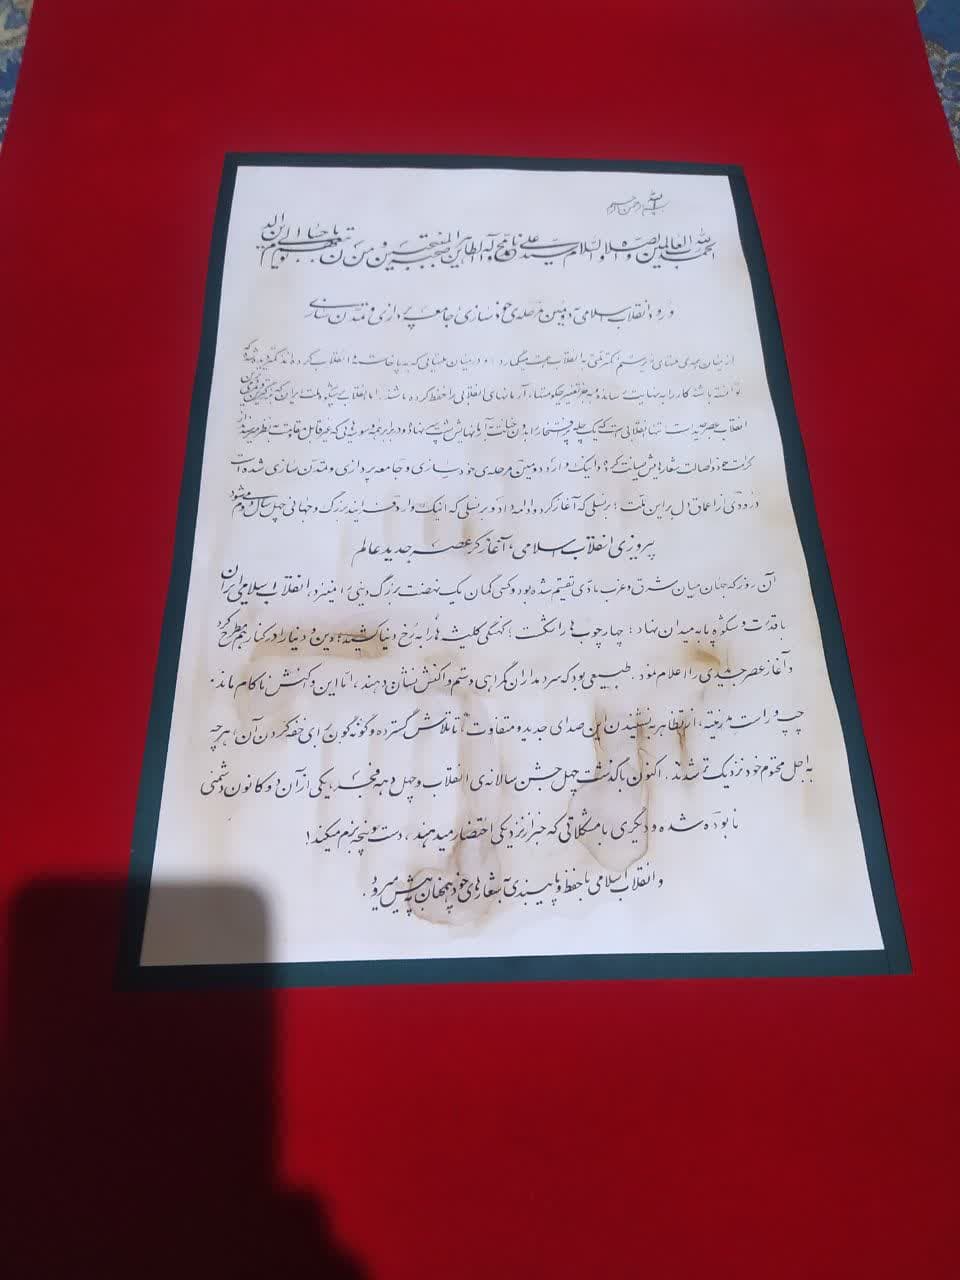 بسم الله الرحمن الرحیم
الحمد لله رب العالمین والصلاه والسلام علی سیدنا محمد وآله الطاهرین وصحبه المنتجبین ومن تبعهم باحسان الی یوم الدین
ورود انقلاب اسلامی به دومین مرحله‌ی خودسازی و جامعه‌پردازی و تمدن‌سازی
از میان همه‌ی ملتهای زیر ستم، کمتر ملتی به انقلاب همت میگمارد؛ و در میان ملتهایی که به پا خاسته و انقلاب کرده‌اند، کمتر دیده شده که
توانسته باشند کار را به نهایت رسانده و به جز تغییر حکومتها، آرمانهای انقلابی را حفظ کرده باشند. اما انقلاب پرشکوه ملت ایران که بزرگترین و مردمی‌ترین
انقلاب عصر جدید است، تنها انقلابی است که یک چله‌ی پرافتخار را بدون خیانت به آرمانهایش پشت سر نهاده و در برابر همه‌ی وسوسه‌هایی که غیر قابل مقاومت به نظر میرسیدند، از
کرامت خود و اصالت شعارهایش صیانت کرده و اینک وارد دومین مرحله‌ی خودسازی و جامعه‌پردازی و تمدن‌سازی شده است
درودی از اعماق دل بر این ملت؛ بر نسلی که آغاز کرد و ادامه داد و بر نسلی که اینک وارد فرایند بزرگ و جهانی چهل سال دوم میشود
پیروزی انقلاب اسلامی، آغازگر عصر جدید عالم
آن روز که جهان میان شرق و غرب مادی تقسیم شده بود و کسی گمان یک نهضت بزرگ دینی را نمیبرد، انقلاب اسلامی ایران
با قدرت و شکوه پا به میدان نهاد؛ چهارچوب‌ها را شکست؛ کهنگی کلیشه‌ها را به رخ دنیا کشید؛ دین و دنیا را در کنار هم مطرح کرد
و آغاز عصر جدیدی را اعلام نمود. طبیعی بود که سردمداران گمراهی و ستم واکنش نشان دهند، اما این واکنش ناکام ماند.
چپ و راست مدرنیته، از تظاهر به نشنیدن این صدای جدید و متفاوت، تا تلاش گسترده و گونه‌گون برای خفه کردن آن، هرچه
به اجل محتوم خود نزدیک‌تر شدند. اکنون با گذشت چهل جشن سالانه‌ی انقلاب و چهل دهه‌ی فجر، یکی از آن دو کانون دشمنی
نابوده شده و دیگری با مشکلاتی که خبر از نزدیکی احتضار میدهند، دست و پنجه نرم میکند!
و انقلاب اسلامی با حفظ و پایبندی به شعارهای خود همچنان به پیش میرود.